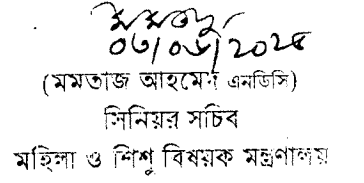 মমতাজ
০৩/০৮/২০২৫
(মমতাজ আহমেদ এনডিসি)
সিনিয়র সচিব
মহিলা ও শিশু বিষয়ক মন্ত্রণালয়